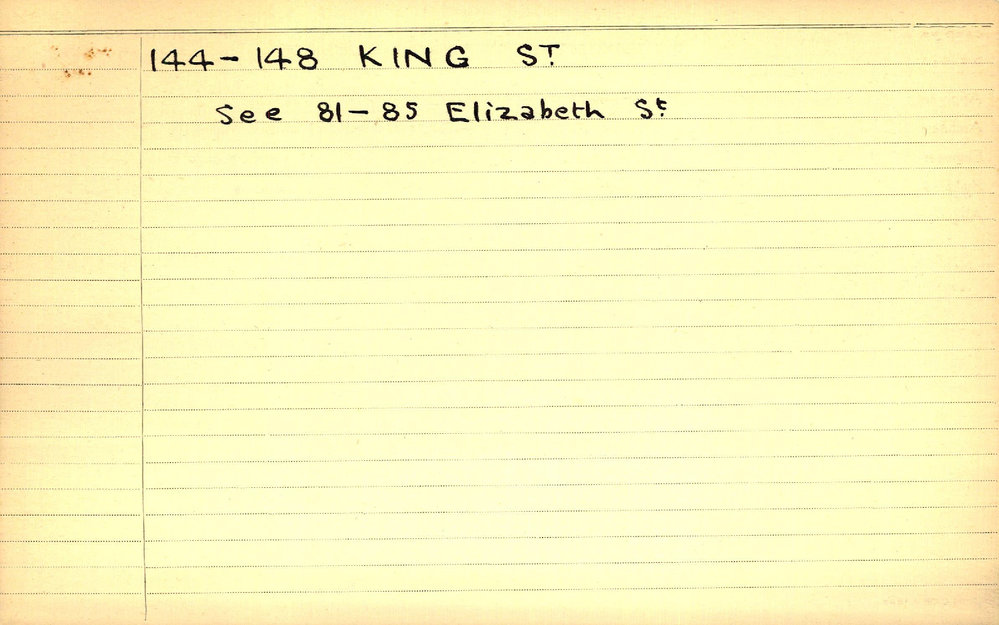 144-148 KING ST
See 81-85 Elizabeth St